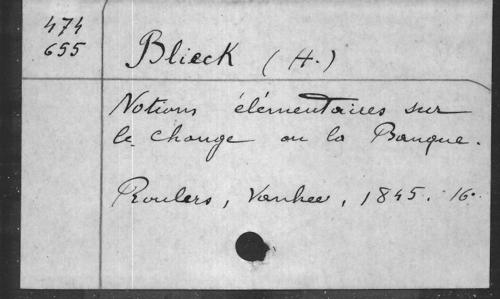 474
655
Blieck (H.)
Notions élémentaires sur
le change ou la Banque.
Roulers, Vanhee, 1845. 16°